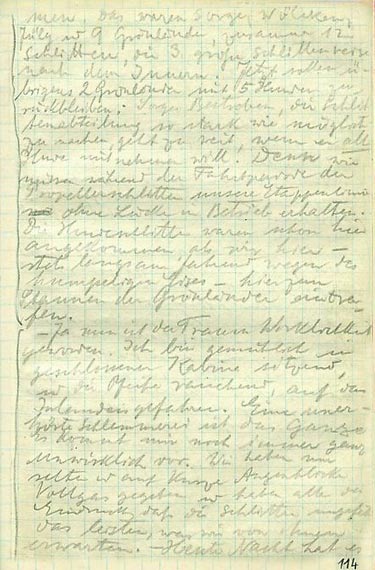 men. Das waren Sorge, Wölcken,
Jülg u 9 Grönländer, zusammen 12
Schlitten, die 3. große Schlittenreise
nach dem Innern. Jetzt sollen
übrigens 2 Grönländer mit 15 Hunden
bleiben; Sorges Bestreben, die Schlit
tenabteilung so stark wie möglich
zu machen, geht zu weit, wenn er alle
Hunde mitnehmen will. Denn wir
müssen während der Fahrtperiode der
Propellerschlitten unsere Etappenlinie
ohne Lücke in Betrieb erhalten.
Die Hundeschlitten waren schon hier
angekommen, als wir hier –
stets langsam fahrend wegen des
humpeligen Eises – hier zum
Staunen der Grönländer eintra-
fen.
– Ja nun ist der Traum Wirklichkeit
geworden. Ich bin gemütlich in
geschlossener Kabine sitzend,
u die Pfeife rauchend, auf das
Inlandeis gefahren. Eine uner-
hörte Schlemmerei ist das Ganze
Es kommt mir noch immer ganz
unwirklich vor. Wir haben nur
selten u auf kurze Augenblicke
Vollgas gegeben u haben alle den
Eindruck, daß die Schlitten
das leisten, was wir von ihnen
erwarten. – Heute Nacht hat es
114